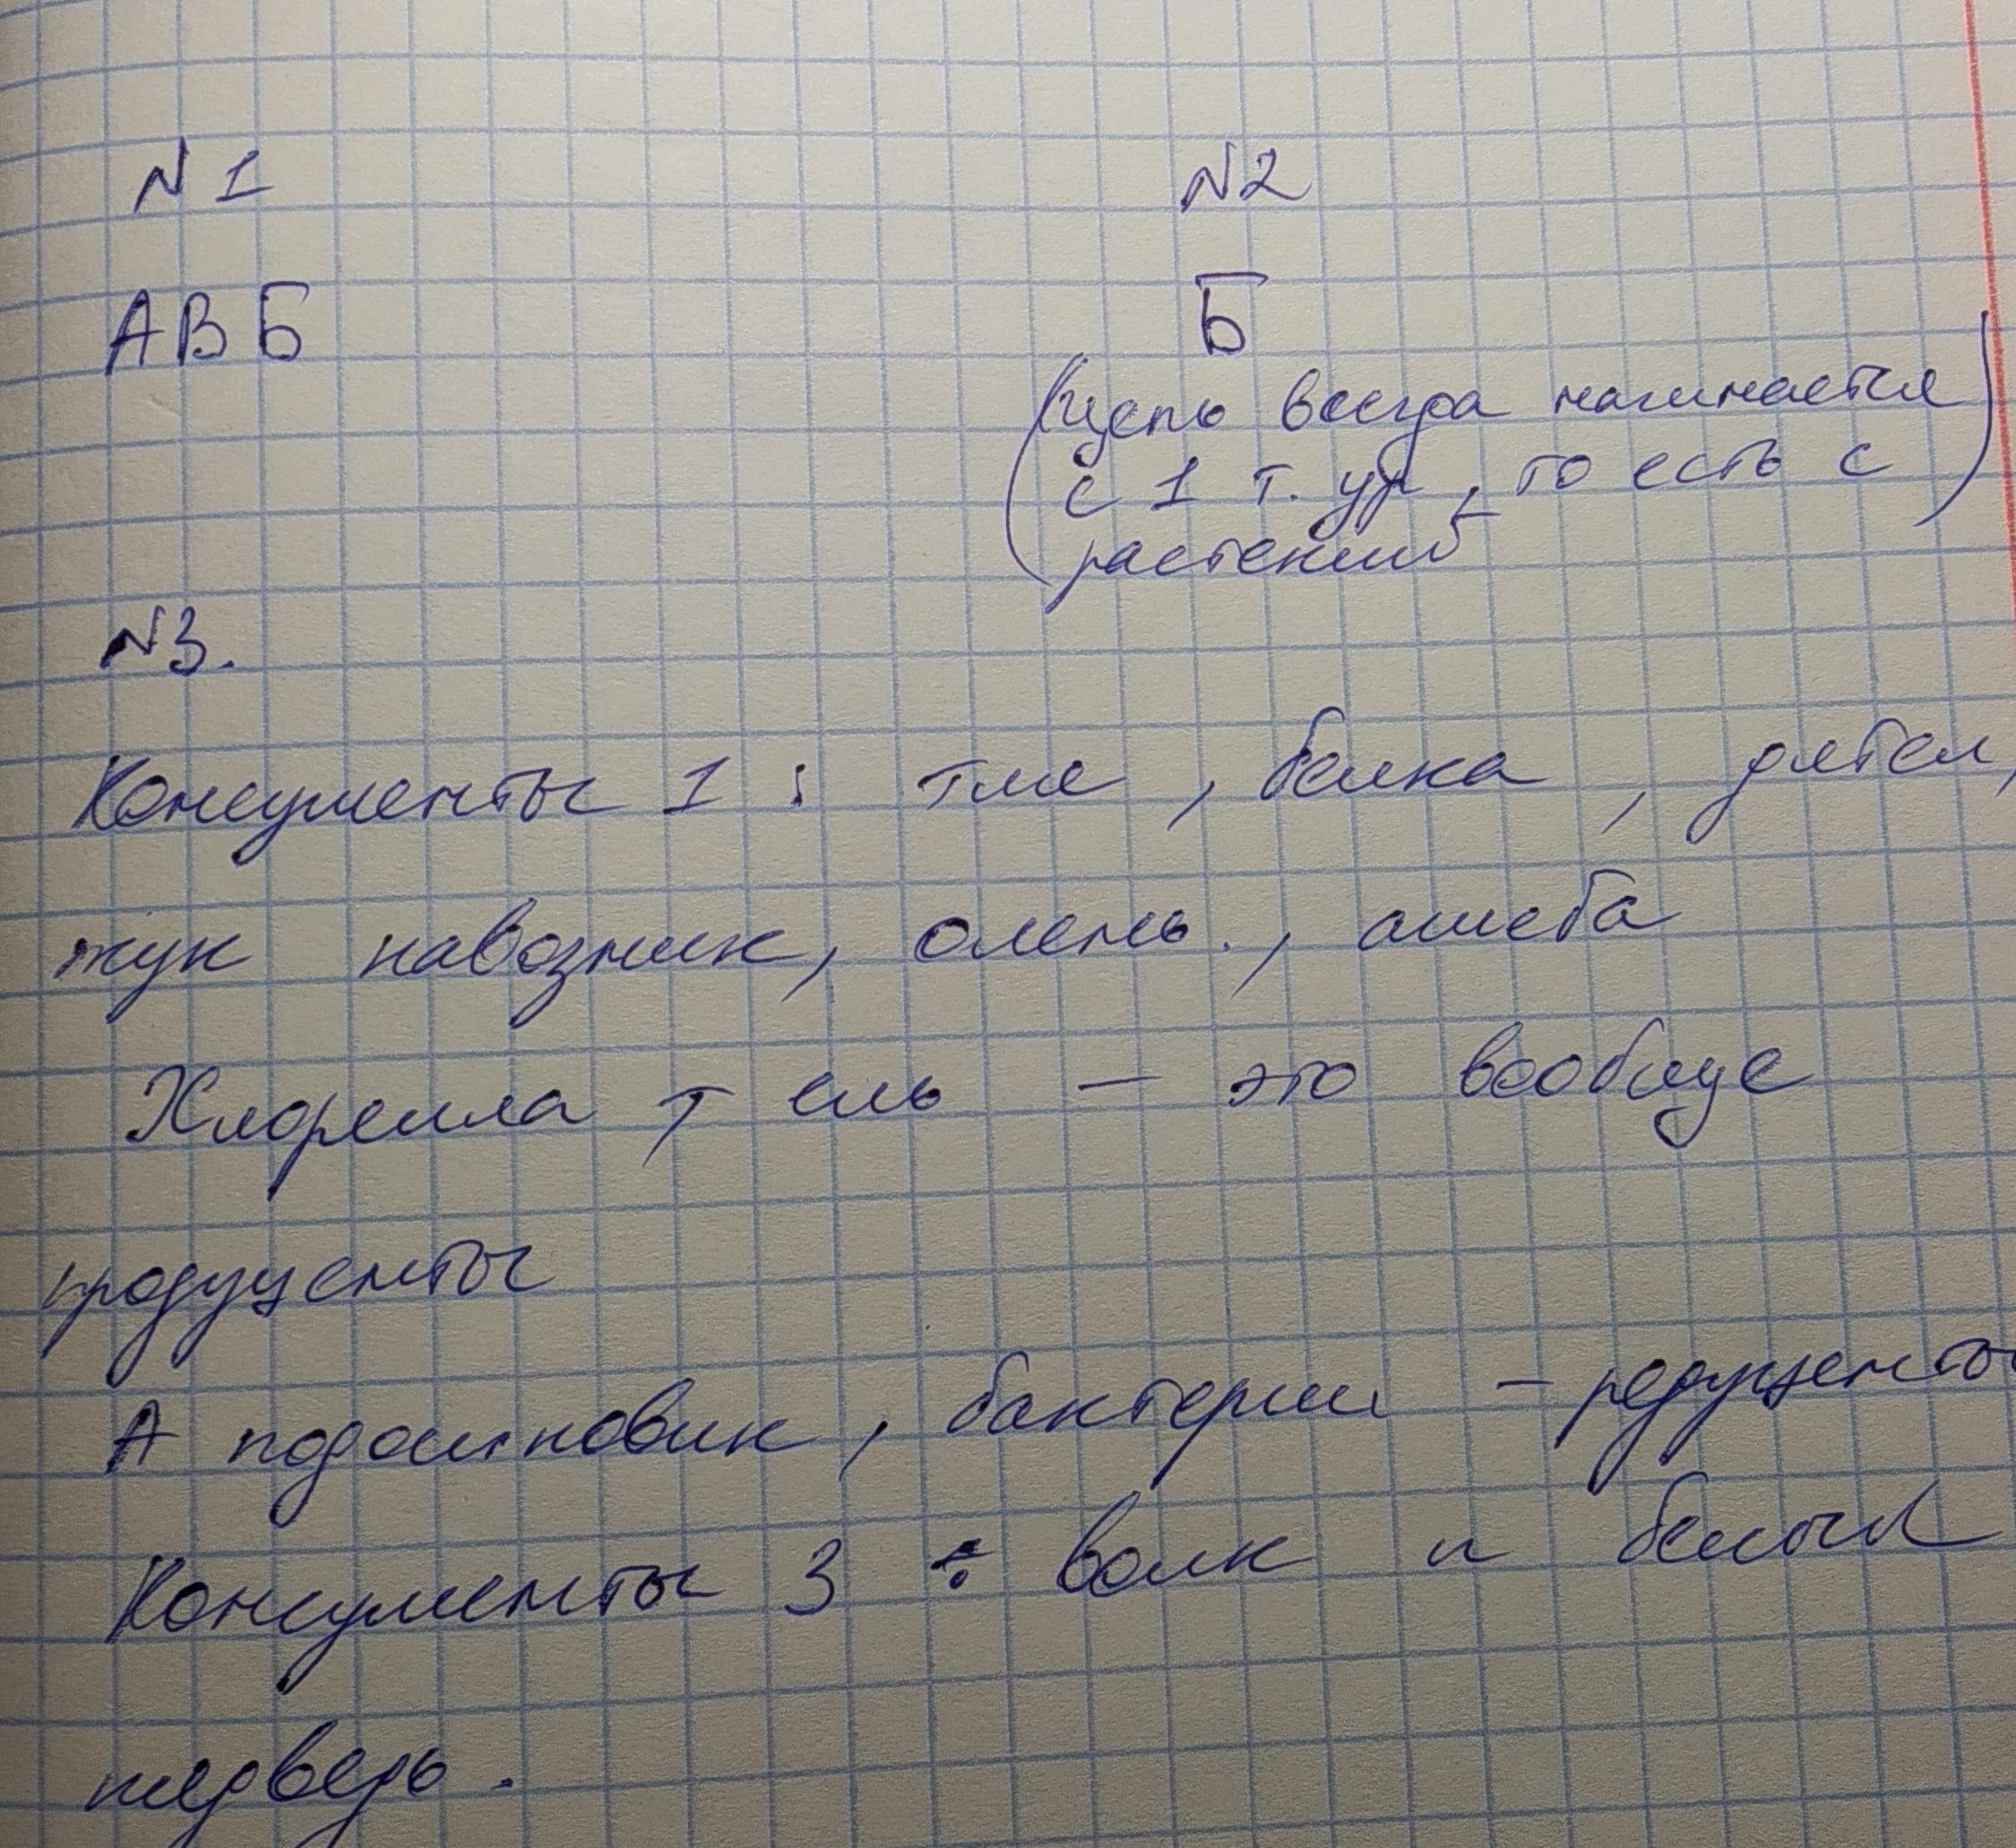 N1
АВБ
N2
Б
(цепь всегда начинается
с 1 т. ур, то есть с
растений)
N3.
Консументы 1 : тля, белка, дятел,
жук навозник, олень., амеба
Хлорелла, ель – это вообще
продуценты
А подосиновик, бактерии – редуценты
Консументы 3 : волк и белый
медведь.